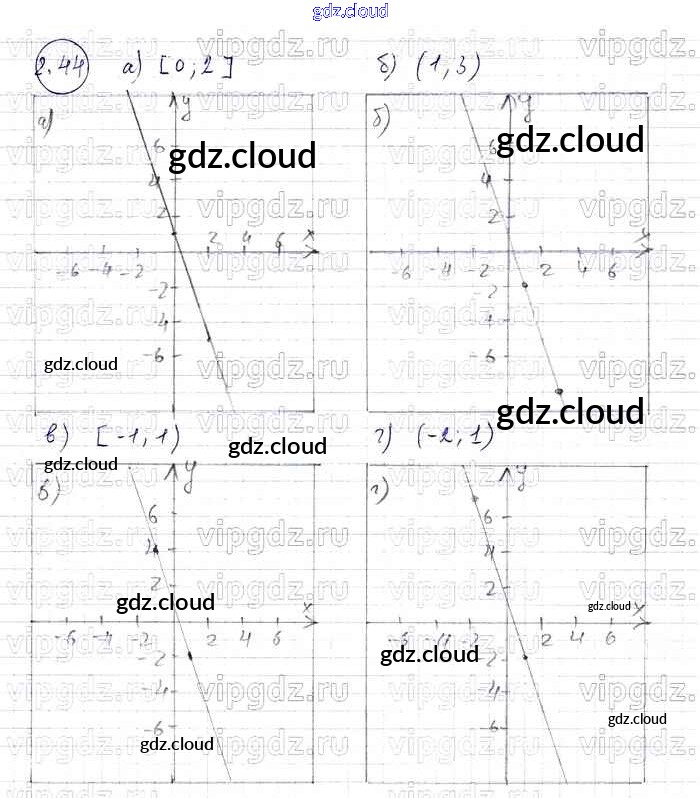 gdz.cloud
2.44 а) [0; 2] б) (1, 3)
а) y б) y
6 6
gdz.cloud gdz.cloud
4 4
2 2
-6 -4 -2 2 4 6 x
-6 -4 -2 2 4 6 x
-2 -2
-4 -4
-6 -6
gdz.cloud
gdz.cloud
в) [-1, 1) г) (-2; 1)
gdz.cloud
gdz.cloud
в) y г) y
6 6
4 4
2 2
gdz.cloud
gdz.cloud
-6 -4 -2 2 4 6 x
-6 -4 -2 2 4 6 x
-2 -2
gdz.cloud
-4 -4
gdz.cloud
-6 -6
gdz.cloud
vipgdz.ru